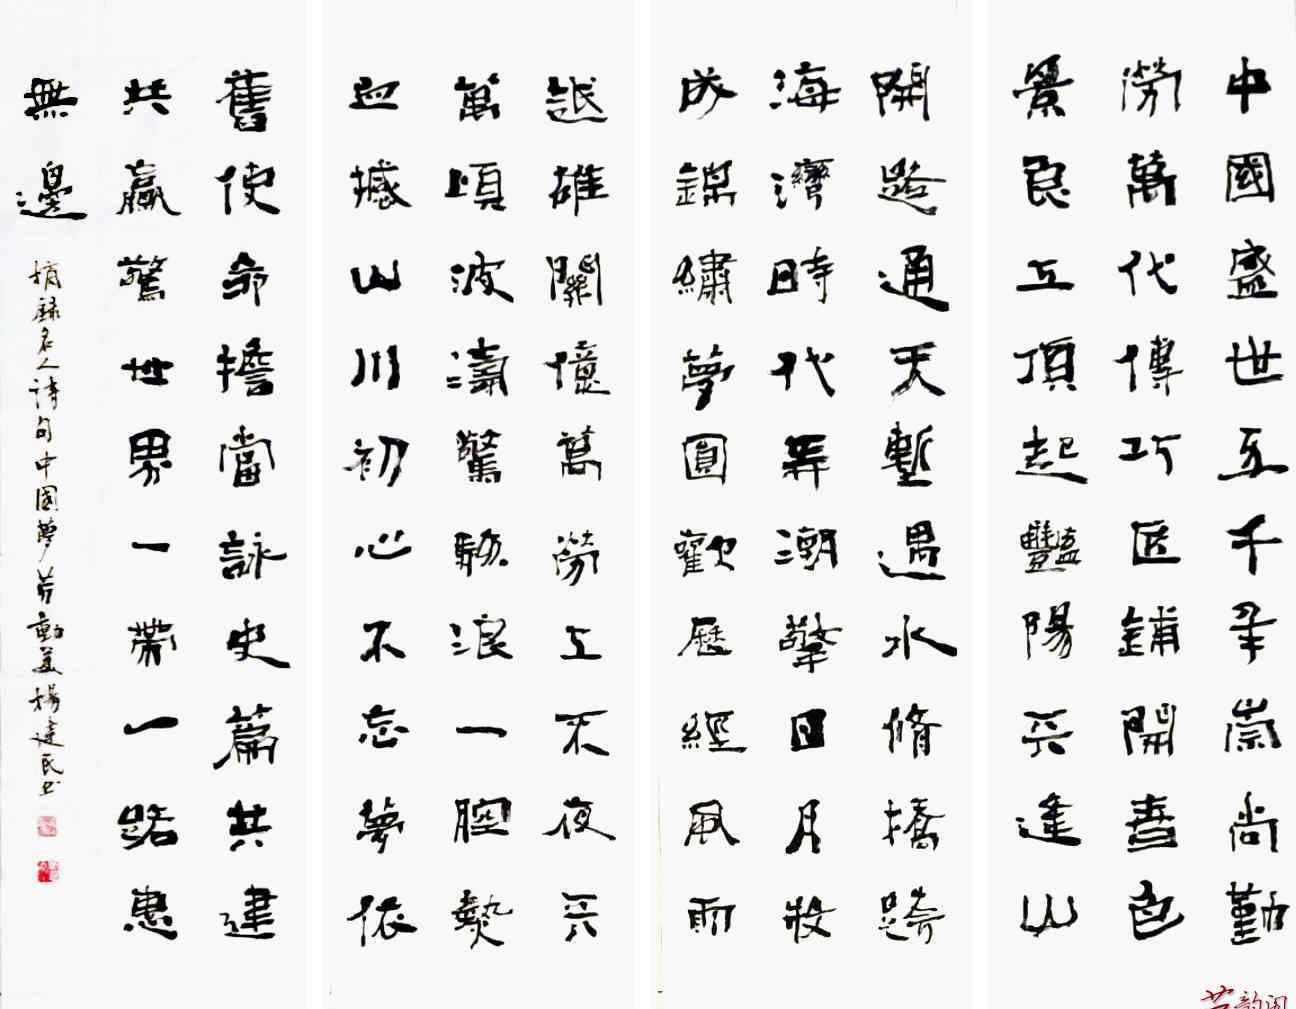 中國盛世五千年崇尚勤
勞萬代傳巧匠鋪開春色
景良工頂起豔陽天逢山
開路通天塹遇水脩橋跨
海灣時代弄潮擎日月妝
成錦繡夢圓歡歷經風雨
越雄關億萬勞工不夜天
萬頃波濤驚駭浪一腔熱
血撼山川初心不忘夢依
舊使命擔當詠史篇共建
共贏驚世界一帶一路惠
無邊
摘錄名人詩句中国夢勞動美楊建民书
艺韵阁